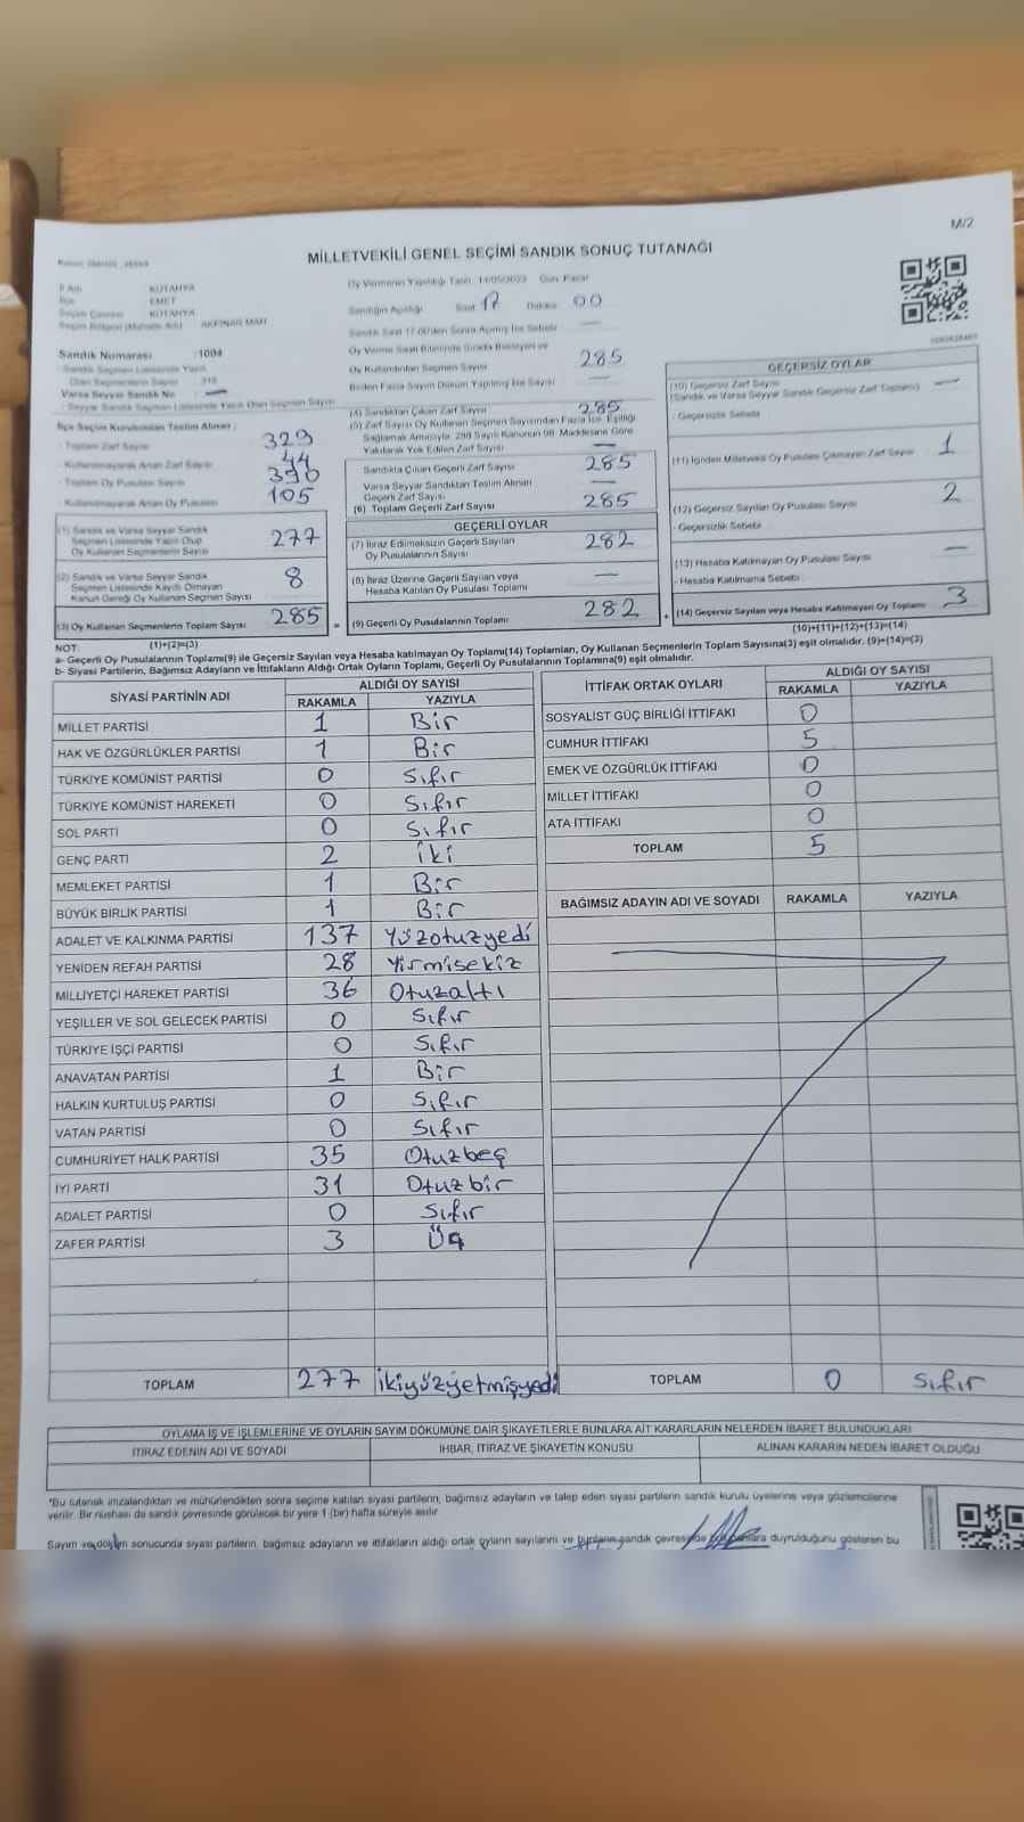 M/2
MİLLETVEKİLİ GENEL SEÇİMİ SANDIK SONUÇ TUTANAĞI
İl Adı KÜTAHYA
İlçe EMET
Seçim Çevresi KÜTAHYA
AKPINAR MAH
Oy Vermenin Yapıldığı Tarih 14/05/2023 Gün Pazar
Sandığın Açıldığı Saat 17 Dakika 00
Sandık Numarası 1004
Oy Kullandırılan Seçmen Sayısı 285
Varsa Seyyar Sandık No —
Toplam Zarf Sayısı 329
Kullanılmayarak Artan Zarf Sayısı 44
Toplam Oy Pusulası Sayısı 390
Kullanılmayarak Artan Oy Pusulası 105
(1) Sandık ve Varsa Seyyar Sandık Seçmen Listesinde Yazılı Olup Oy Kullanan Seçmenlerin Sayısı 277
(2) Sandık ve Varsa Seyyar Sandık Seçmen Listesinde Kayıtlı Olmayan Kanun Gereği Oy Kullanan Seçmen Sayısı 8
(3) Oy Kullanan Seçmenlerin Toplam Sayısı 285
(4) Sandıktan Çıkan Zarf Sayısı 285
Sandıkta Çıkan Geçerli Zarf Sayısı 285
Varsa Seyyar Sandıktan Teslim Alınan Geçerli Zarf Sayısı —
(6) Toplam Geçerli Zarf Sayısı 285
GEÇERLİ OYLAR
(7) İtiraz Edilmeksizin Geçerli Sayılan Oy Pusulalarının Sayısı 282
(8) İtiraz Üzerine Geçerli Sayılan veya Hesaba Katılan Oy Pusulası Toplamı —
(9) Geçerli Oy Pusulalarının Toplamı 282
GEÇERSİZ OYLAR
(10) Geçersiz Zarf Sayısı —
(Sandık ve Varsa Seyyar Sandık Geçersiz Zarf Toplamı)
- Geçersizlik Sebebi
(11) İçinden Milletvekili Oy Pusulası Çıkmayan Zarf Sayısı 1
(12) Geçersiz Sayılan Oy Pusulası Sayısı 2
- Geçersizlik Sebebi
(13) Hesaba Katılmayan Oy Pusulası Sayısı —
- Hesaba Katılmama Sebebi
(14) Geçersiz Sayılan veya Hesaba Katılmayan Oy Toplamı 3
NOT: (1)+(2)=(3) (10)+(11)+(12)+(13)=(14)
a- Geçerli Oy Pusulalarının Toplamı(9) ile Geçersiz Sayılan veya Hesaba katılmayan Oy Toplamı(14) Toplamları, Oy Kullanan Seçmenlerin Toplam Sayısına(3) eşit olmalıdır. (9)+(14)=(3)
b- Siyasi Partilerin, Bağımsız Adayların ve İttifakların Aldığı Ortak Oyların Toplamı, Geçerli Oy Pusulalarının Toplamına(9) eşit olmalıdır.
SİYASİ PARTİNİN ADI ALDIĞI OY SAYISI
RAKAMLA YAZIYLA
MİLLET PARTİSİ 1 Bir
HAK VE ÖZGÜRLÜKLER PARTİSİ 1 Bir
TÜRKİYE KOMÜNİST PARTİSİ 0 Sıfır
TÜRKİYE KOMÜNİST HAREKETİ 0 Sıfır
SOL PARTİ 0 Sıfır
GENÇ PARTİ 2 İki
MEMLEKET PARTİSİ 1 Bir
BÜYÜK BİRLİK PARTİSİ 1 Bir
ADALET VE KALKINMA PARTİSİ 137 Yüzotuzyedi
YENİDEN REFAH PARTİSİ 28 Yirmisekiz
MİLLİYETÇİ HAREKET PARTİSİ 36 Otuzaltı
YEŞİLLER VE SOL GELECEK PARTİSİ 0 Sıfır
TÜRKİYE İŞÇİ PARTİSİ 0 Sıfır
ANAVATAN PARTİSİ 1 Bir
HALKIN KURTULUŞ PARTİSİ 0 Sıfır
VATAN PARTİSİ 0 Sıfır
CUMHURİYET HALK PARTİSİ 35 Otuzbeş
İYİ PARTİ 31 Otuzbir
ADALET PARTİSİ 0 Sıfır
ZAFER PARTİSİ 3 Üç
TOPLAM 277 İkiyüzyetmişyedi
İTTİFAK ORTAK OYLARI ALDIĞI OY SAYISI
RAKAMLA YAZIYLA
SOSYALİST GÜÇ BİRLİĞİ İTTİFAKI 0
CUMHUR İTTİFAKI 5
EMEK VE ÖZGÜRLÜK İTTİFAKI 0
MİLLET İTTİFAKI 0
ATA İTTİFAKI 0
TOPLAM 5
BAĞIMSIZ ADAYIN ADI VE SOYADI RAKAMLA YAZIYLA
TOPLAM 0 Sıfır
OYLAMA İŞ VE İŞLEMLERİNE VE OYLARIN SAYIM DÖKÜMÜNE DAİR ŞİKAYETLERLE BUNLARA AİT KARARLARIN NELERDEN İBARET BULUNDUKLARI
İTİRAZ EDENİN ADI VE SOYADI İHBAR, İTİRAZ VE ŞİKAYETİN KONUSU ALINAN KARARIN NEDEN İBARET OLDUĞU
*Bu tutanak imzalandıktan ve mühürlendikten sonra seçime katılan siyasi partilerin, bağımsız adayların ve talep eden siyasi partilerin sandık kurulu üyelerine veya gözlemcilerine
verilir. Bir nüshası da sandık çevresinde görülecek bir yere 1 (bir) hafta süreyle asılır
Sayım ve döküm sonucunda siyasi partilerin, bağımsız adayların ve ittifakların aldığı ortak oyların sayılarını ve bunların sandık çevresinde duyrulduğunu gösteren bu